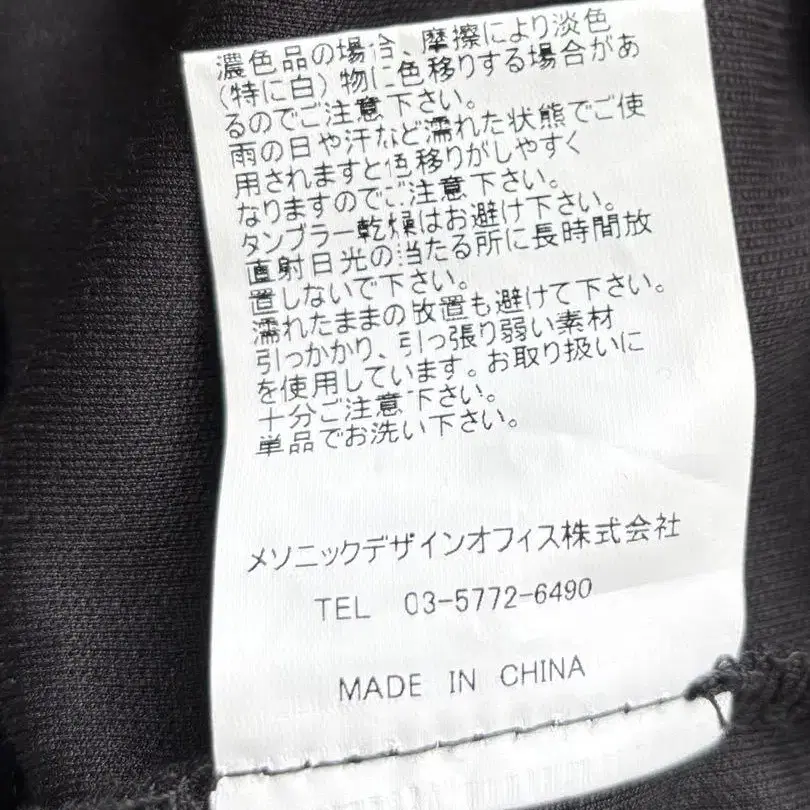 濃色品の場合、摩擦により淡色
(特に白)物に色移りする場合があ
るのでご注意下さい。
雨の日や汗など濡れた状態でご使
用されますと色移りがしやすく
なりますのでご注意下さい。
タンブラー乾燥はお避け下さい。
直射日光の当たる所に長時間放
置しないで下さい。
濡れたままの放置も避けて下さい。
引っかかり、引っ張り弱い素材
を使用しています。お取り扱いに
十分ご注意下さい。
単品でお洗い下さい。
メソニックデザインオフィス株式会社
TEL 03-5772-6490
MADE IN CHINA